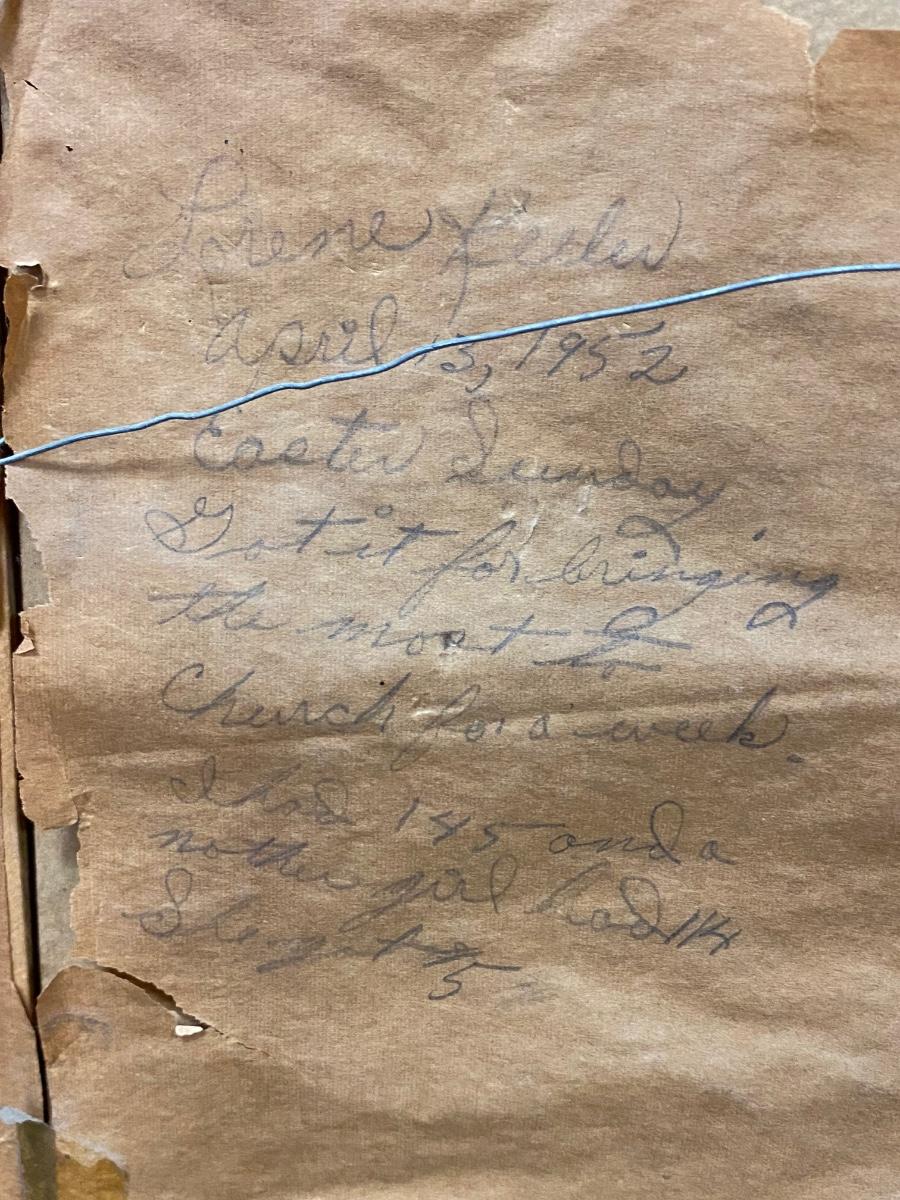 Lorene
April 13, 1952
Easter Sunday
Got it for bringing
the most to
Church for a week.
I had 145 and a
nother girl had 114
She got